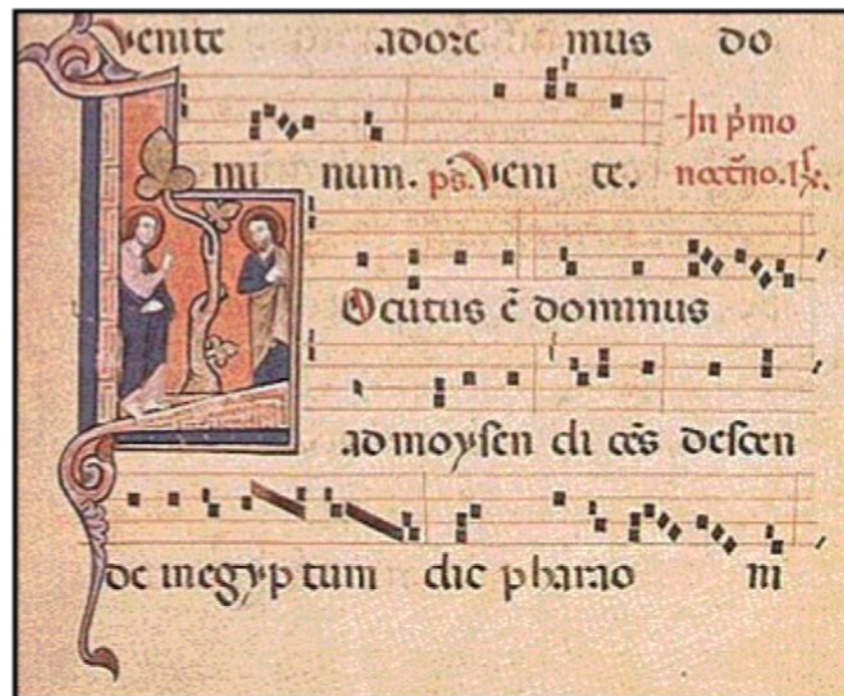 Venite adore mus do
In p̄mo
mi num. ps̄. Veni te. noct̄no.
Ocutus ē dominus
ad moyſen di cēs deſcen
de in egyp tum dic pharao ni